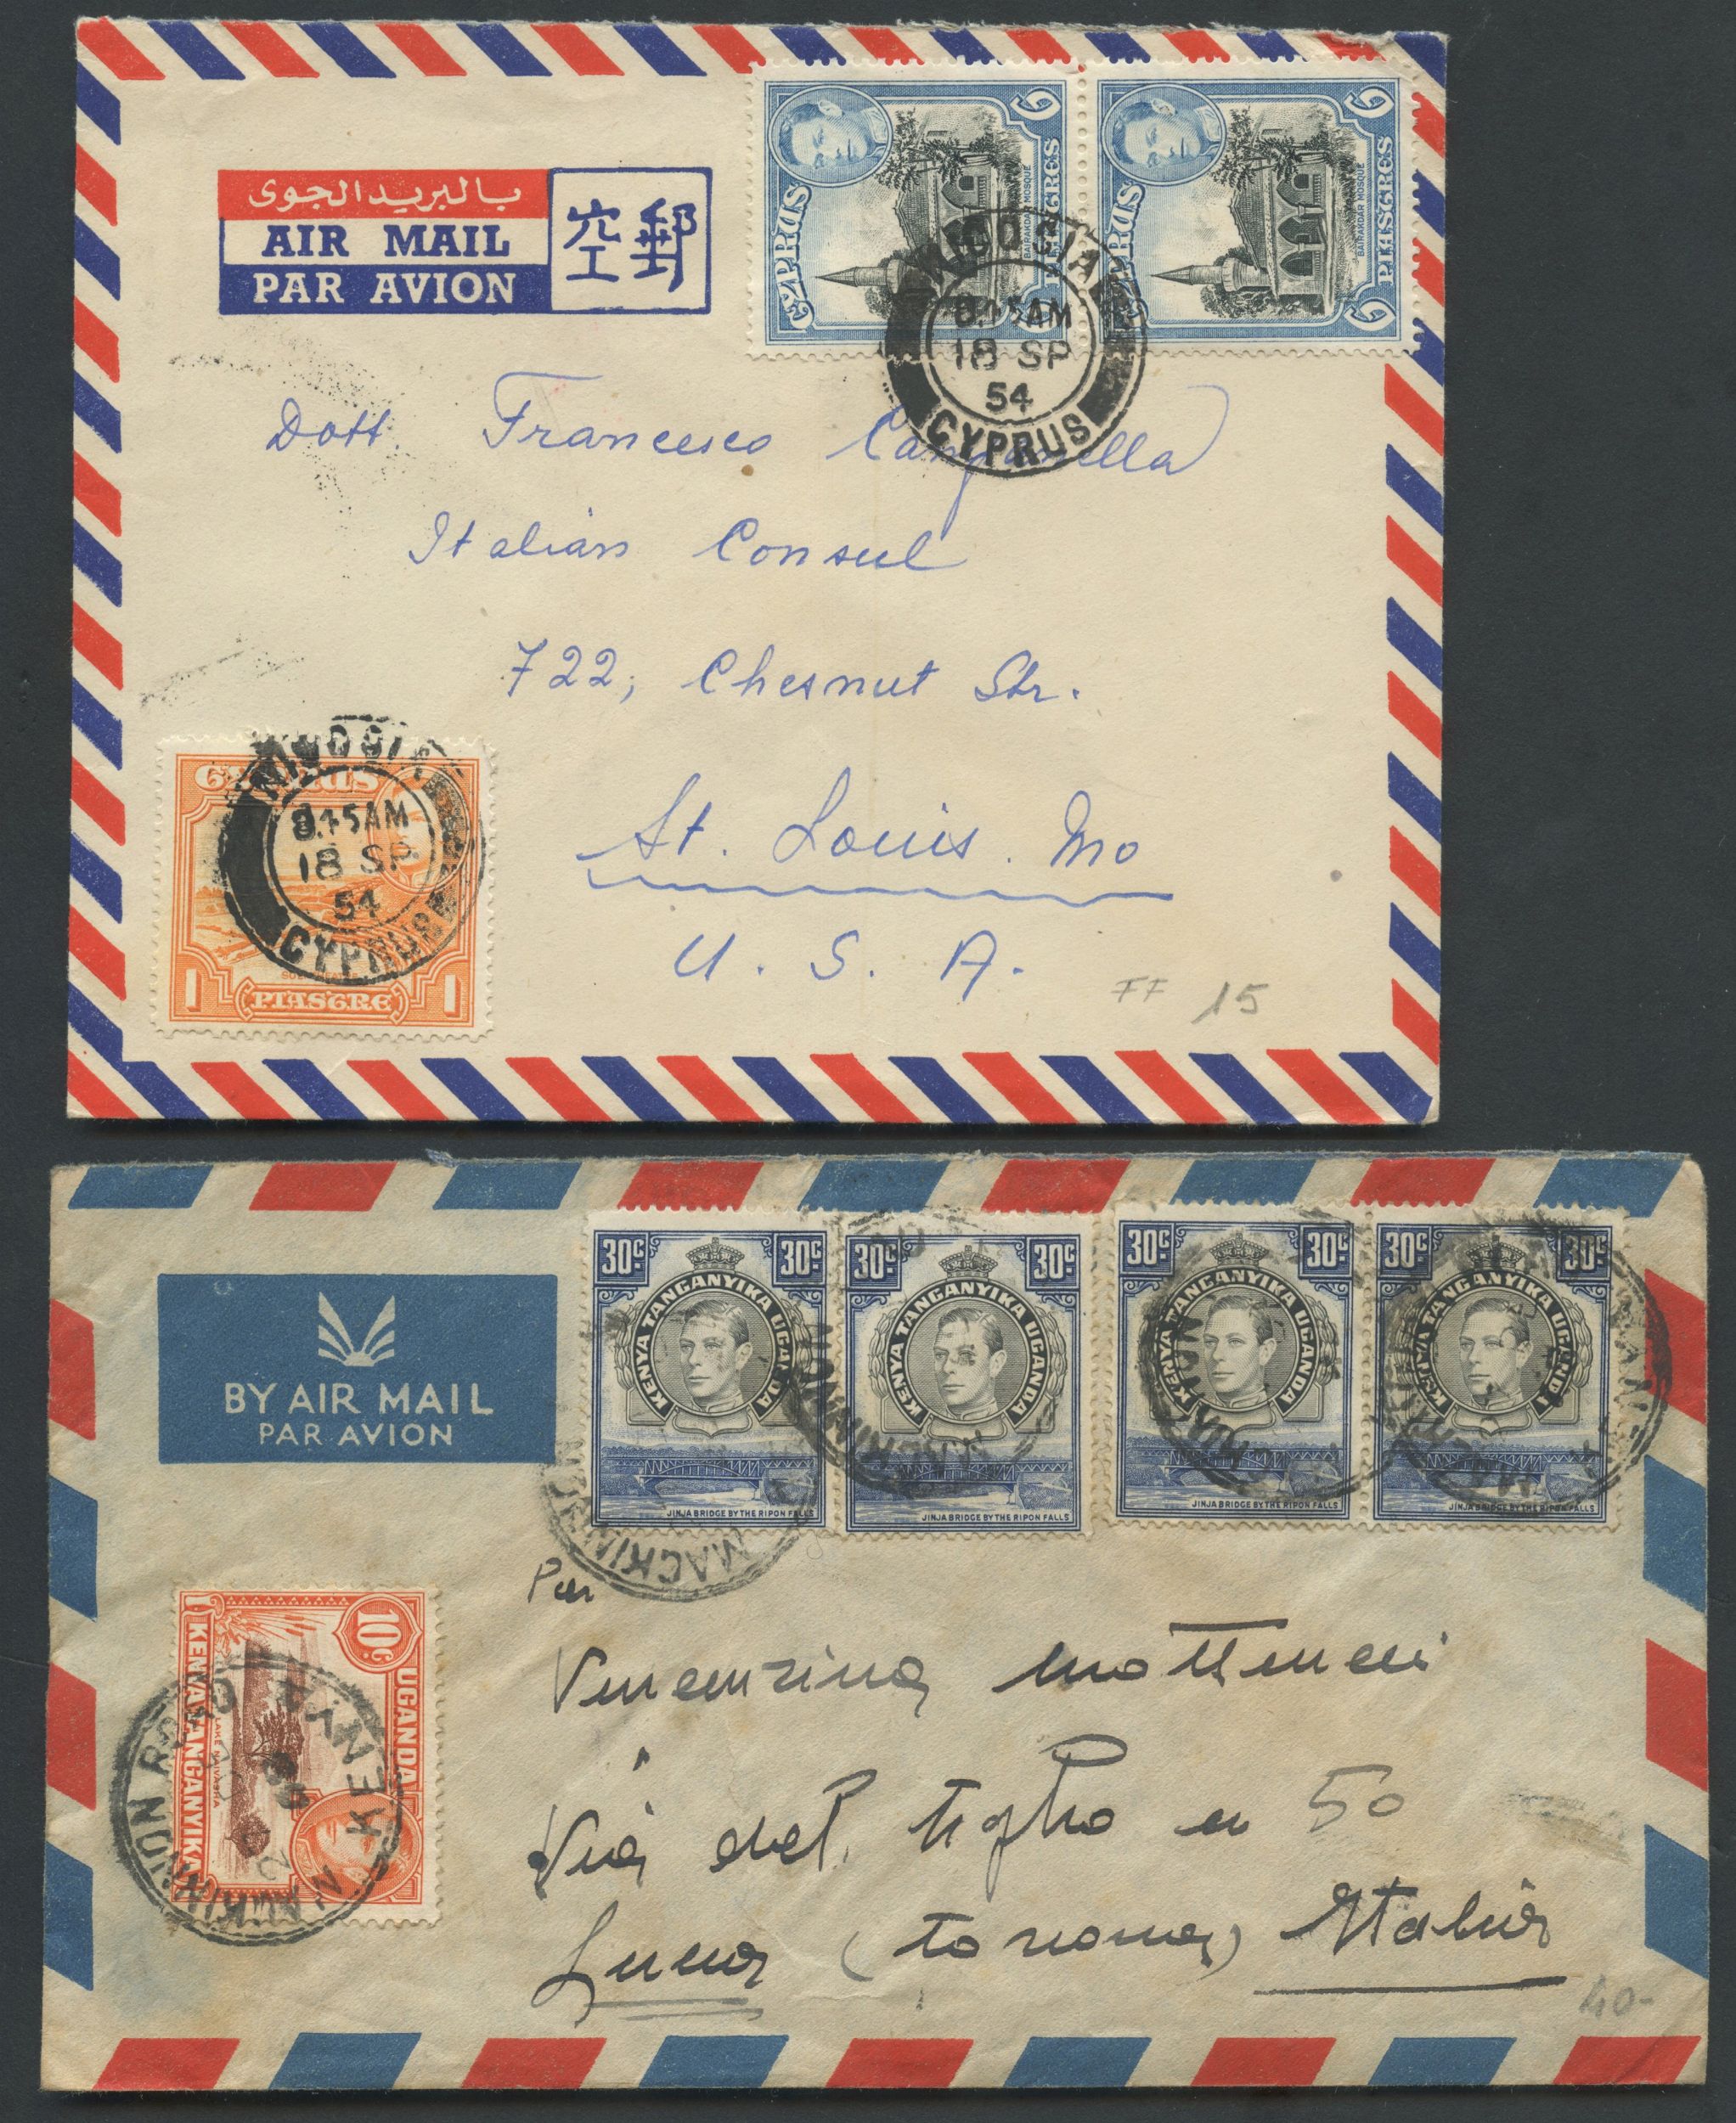 بالبريد الجوى
AIR MAIL
PAR AVION
空郵
CYPRUS
6
PIASTRES
BAIRAKDAR MOSQUE
6
CYPRUS
6
PIASTRES
BAIRAKDAR MOSQUE
6
NICOSIA
8.45AM
18 SP
54
CYPRUS
Dott Francesco Campanella
Italian Consul
722, Chesnut Str.
St. Louis. Mo
U. S. A.
FF 15
CYPRUS
1 PIASTRE 1
NICOSIA
8.45AM
18 SP
54
CYPRUS
BY AIR MAIL
PAR AVION
30c 30c
KENYA TANGANYIKA UGANDA
JINJA BRIDGE BY THE RIPON FALLS
30c 30c
KENYA TANGANYIKA UGANDA
JINJA BRIDGE BY THE RIPON FALLS
30c 30c
KENYA TANGANYIKA UGANDA
JINJA BRIDGE BY THE RIPON FALLS
30c 30c
KENYA TANGANYIKA UGANDA
JINJA BRIDGE BY THE RIPON FALLS
MACKINNON
10c
UGANDA
KENYA TANGANYIKA
LAKE NAIVASHA
MACKINNON ROAD
KENYA
Per
Via del Tiglio n 50
Lucca Italia
40-